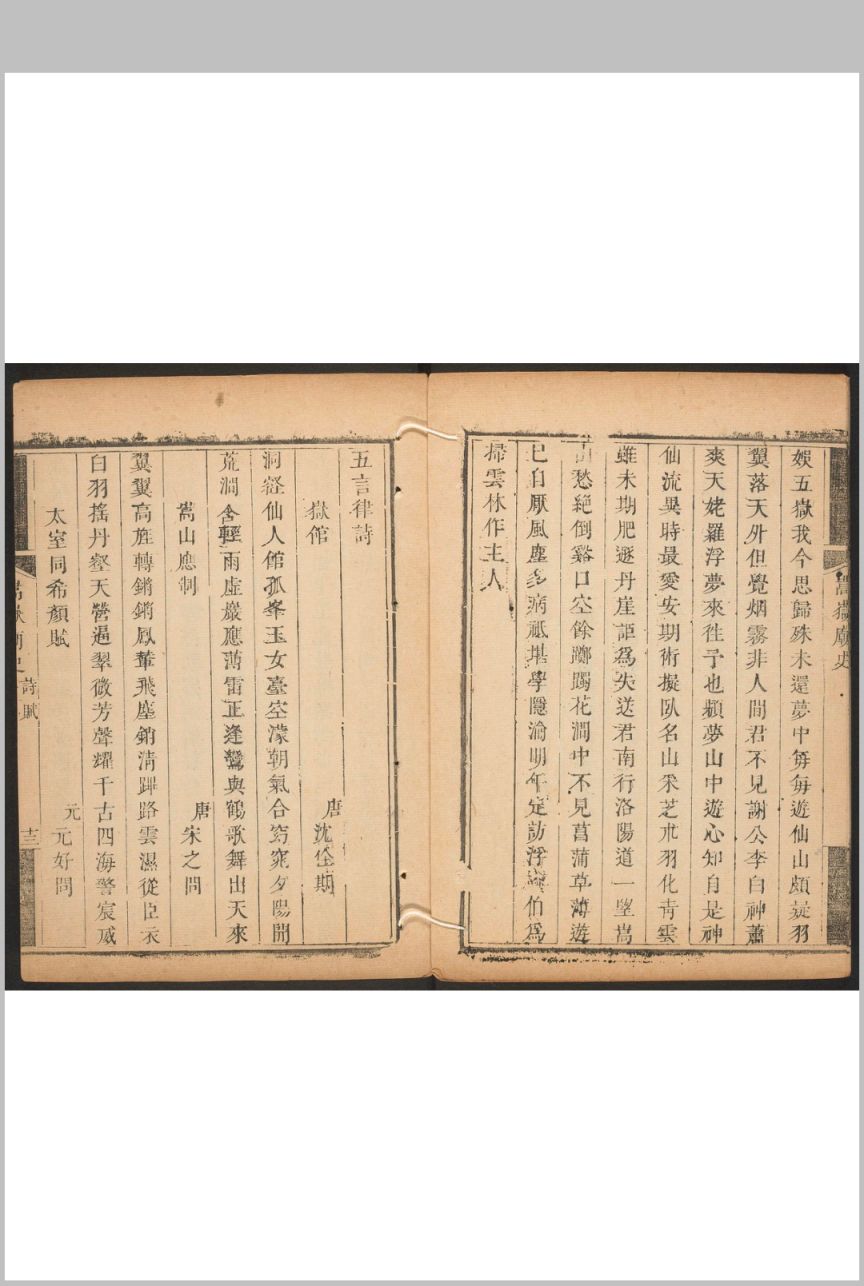 娛五嶽我今思歸殊未還夢中每每遊仙山頗疑羽
翼落天外但覺烟霧非人間君不見謝公李白神蕭
爽天姥羅浮夢來徃予也頻夢山中遊心知自是神
仙流異時最愛安期術擬臥名山采芝朮羽化靑雲
雖未期肥遯丹崖詎爲失送君南行洛陽道一望嵩
愁絶倒谿口空餘躑躅花澗中不見菖蒲草薄遊
已自厭風塵多病祗堪學隱淪明年定訪浮伯爲
掃雲林作主人
嵩嶽廟史
五言律詩
嶽館
唐沈佺期
洞壑仙人館孤峯玉女臺空濛朝氣合窈窕夕陽開
荒澗含輕雨虛巖應薄雷正逢鸞與鶴歌舞出天來
嵩山應制
唐宋之問
翼翼高旌轉鏘鏘鳳輦飛塵銷清蹕路雲濕從臣衣
白羽搖丹壑天營逼翠微芳聲耀千古四海警宸威
太室同希顏賦
元元好問
嵩嶽廟史
詩賦
十三